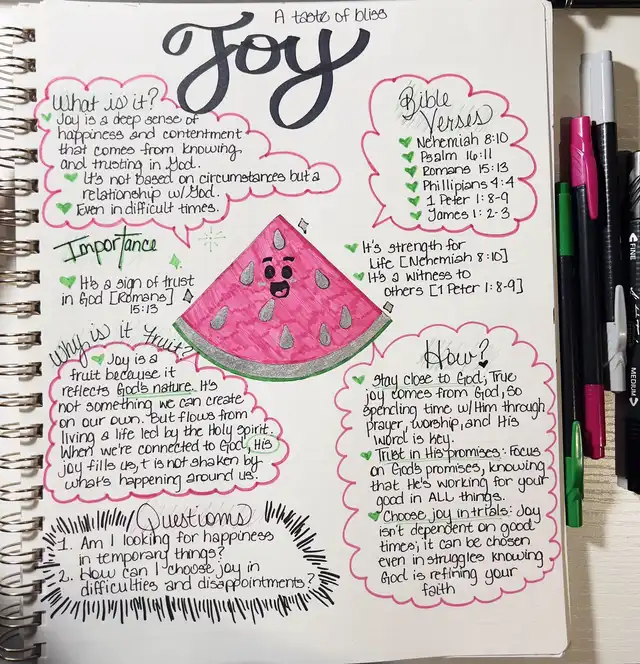 A taste of bliss
Joy
What is it?
Joy is a deep sense of
happiness and contentment
that comes from knowing
and trusting in God.
It's not based on circumstances but a
relationship w/God.
Even in difficult times.
Bible
Verses
Nehemiah 8:10
Psalm 16:11
Romans 15:13
Phillipians 4:4
1 Peter 1:8-9
James 1:2-3
Importance
It's a sign of trust
in God [Romans]
15:13
It's strength for
Life [Nehemiah 8:10]
It's a witness to
others [1 Peter 1:8-9]
Why is it fruit?
Joy is a
fruit because it
reflects God's nature. It's
not something we can create
on our own. But flows from
living a life led by the Holy Spirit.
When we're connected to God, His
joy fills us, t is not shaken by
what's happening around us.
How?
Stay close to God; True
joy comes from God, so
spending time w/Him through
prayer, worship, and His
word is key.
Trust in His promises: Focus
on God's promises, knowing
that He's working for your
good in ALL things.
Choose joy in trials: Joy
isn't dependent on good
times; it can be chosen
even in struggles knowing
God is refining your
faith
Questions
1. Am I looking for happiness
in temporary things?
2. How can I choose joy in
difficulties and disappointments?
FINE
MEDIUM